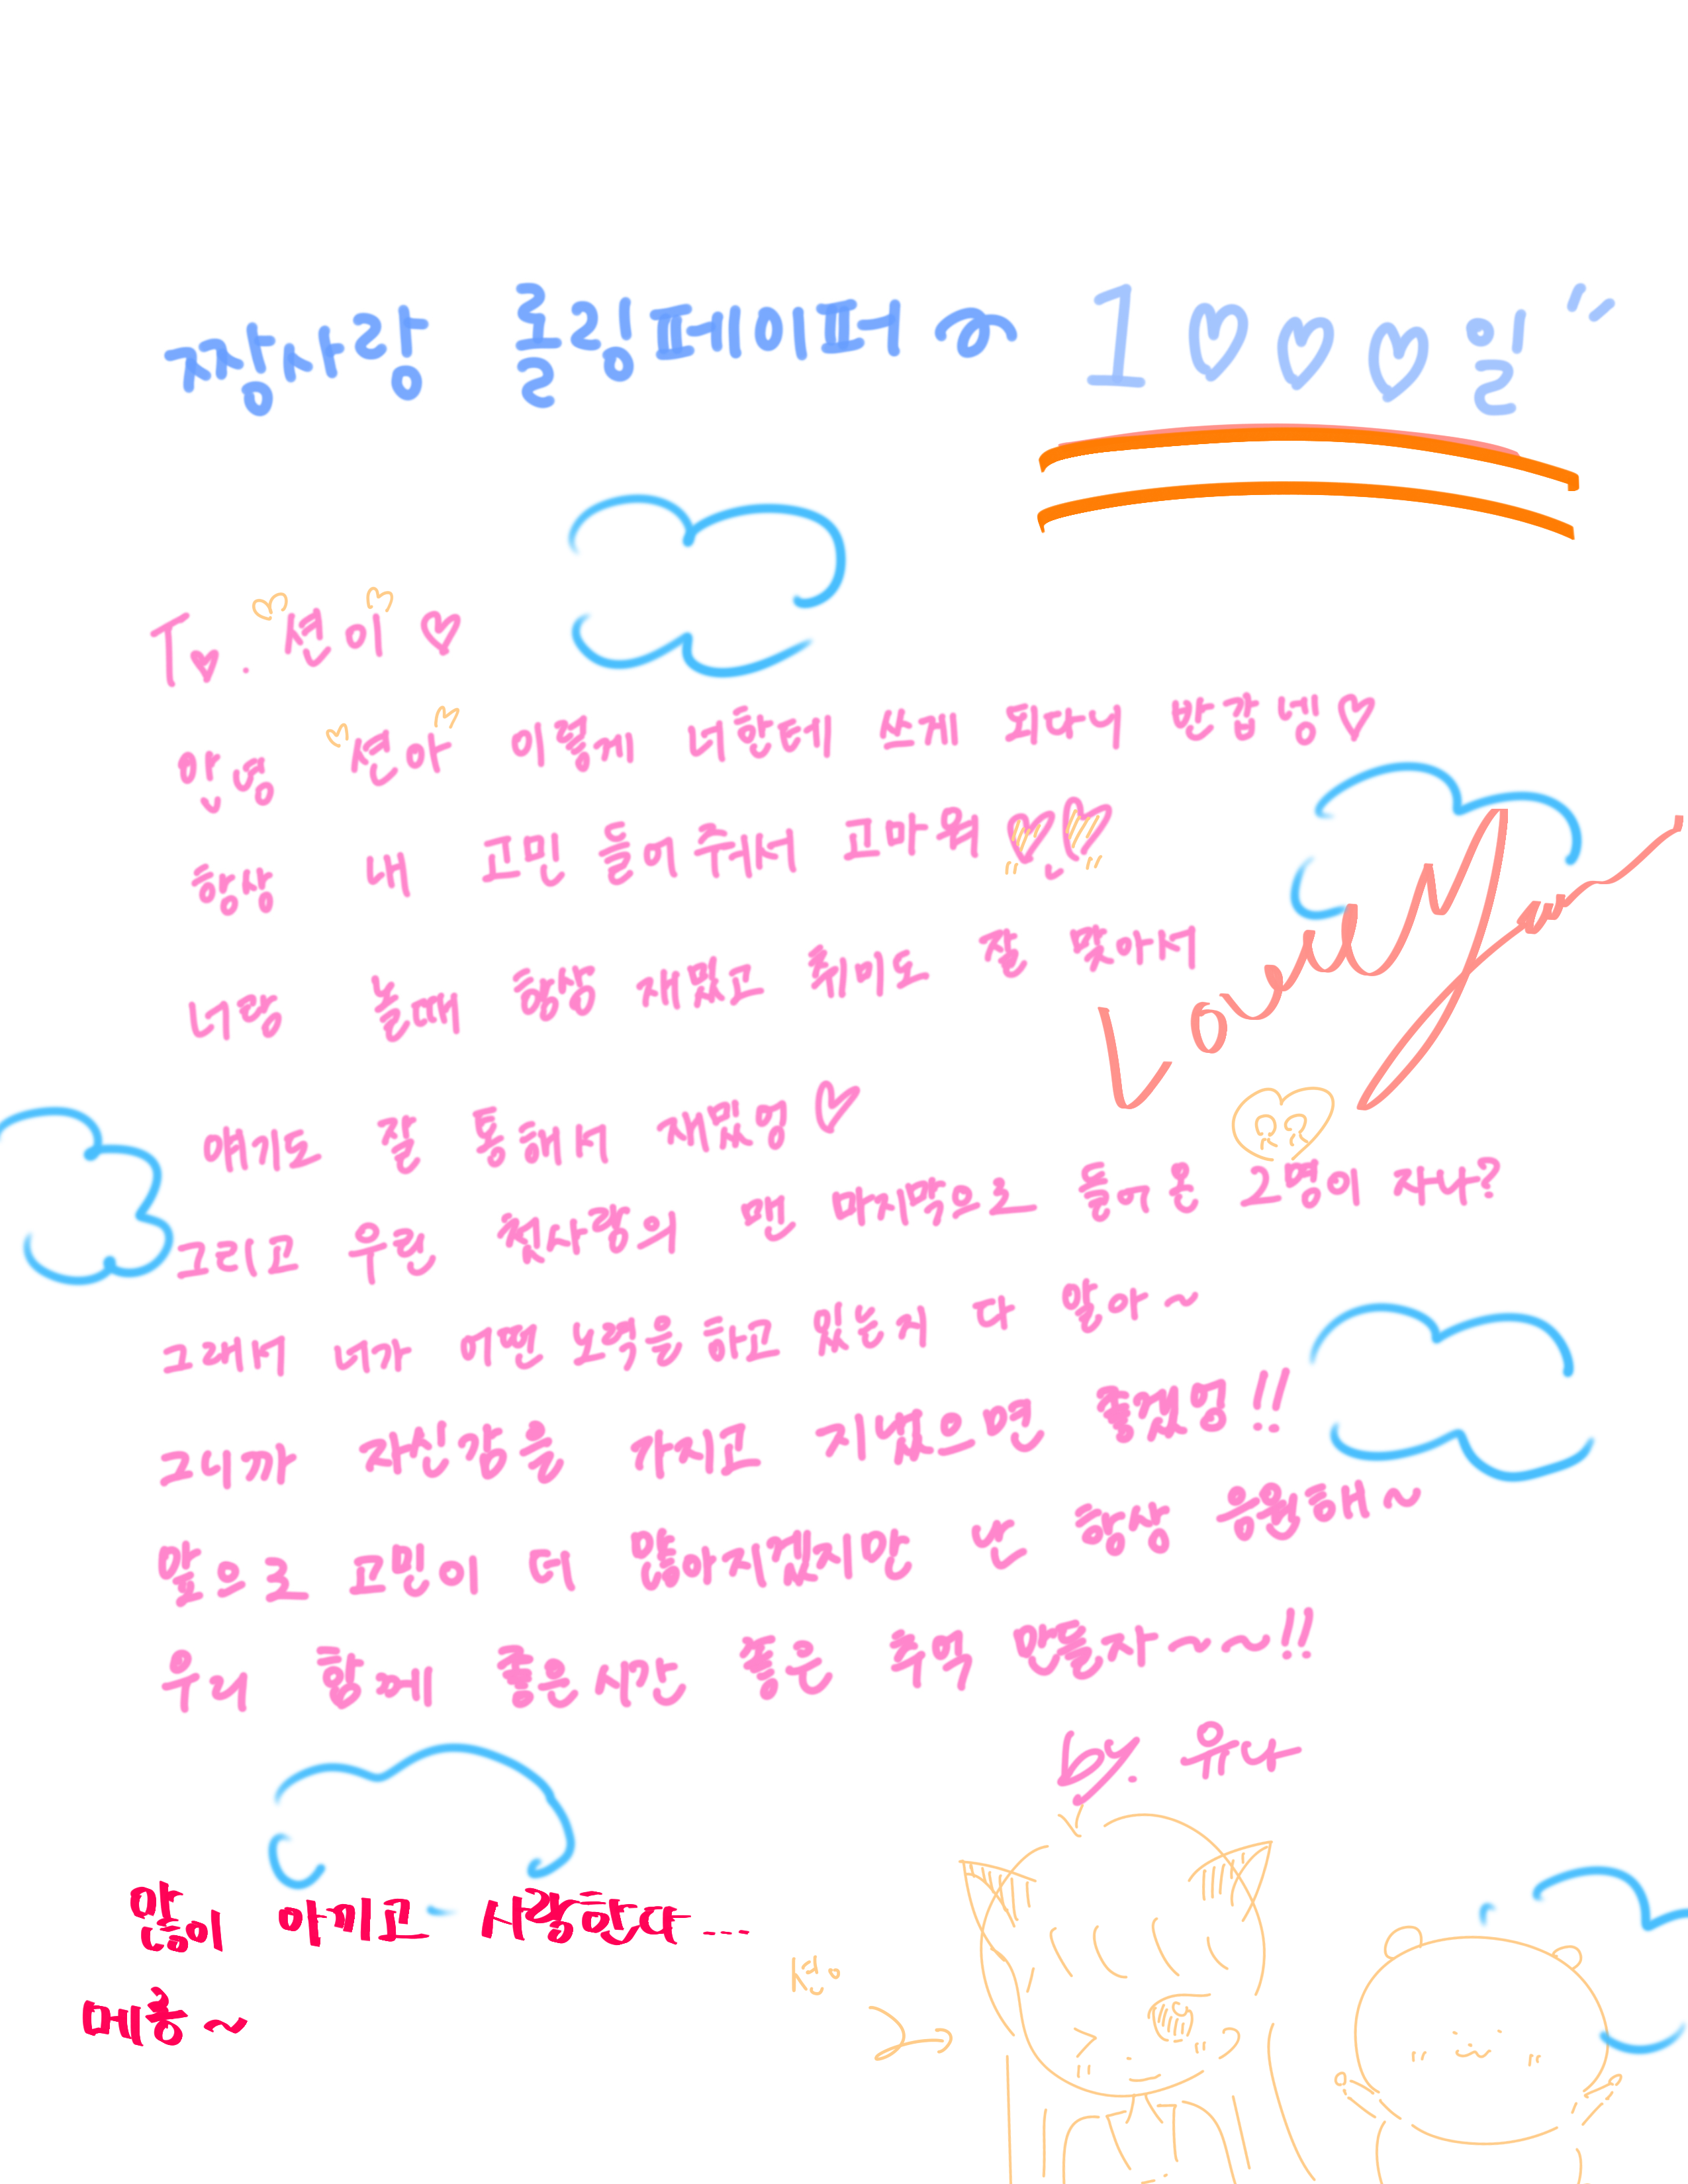 짱사랑 롤링페이퍼 1000일
To. 션이♡
안녕 션아 이렇게 너한테 쓰게 되다니 반갑넹♡
항상 내 고민 들어줘서 고마워
너랑 놀때 항상 재밌고 취미도 잘 맞아서
Love You
얘기도 잘 통해서 재밌엉♡
그리고 우린 첫사랑의 맨 마지막으로 들어온 2명이 자나?
그래서 너가 어떤 노력을 하고 있는지 다 알아~
그니까 자신감을 가지고 지냈으면 좋겠엉!!
앞으로 고민이 더 많아지겠지만 난 항상 응원해~
우리 함께 좋은시간 좋은 추억 만들자~~!!
by. 유나
많이 아끼고 사랑한다...
메흥~